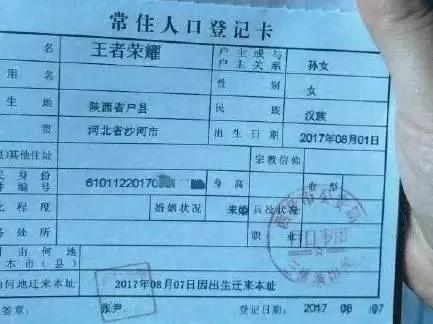 常住人口登记卡
名 王者荣耀 户主或与户主关系 孙女
用名 性别 女
生地 陕西省户县 民族 汉族
贯 河北省沙河市 出生日期 2017年08月01日
其他住址 宗教信仰
民身份 编号 6101122017 身高 血型
化程度 婚姻状况 未婚 兵役状况
务处所 职业
由何地 本市(县)
何地迁来本址 2017年08月07日因出生迁来本址
签章: 张尹 登记日期: 2017 08 07